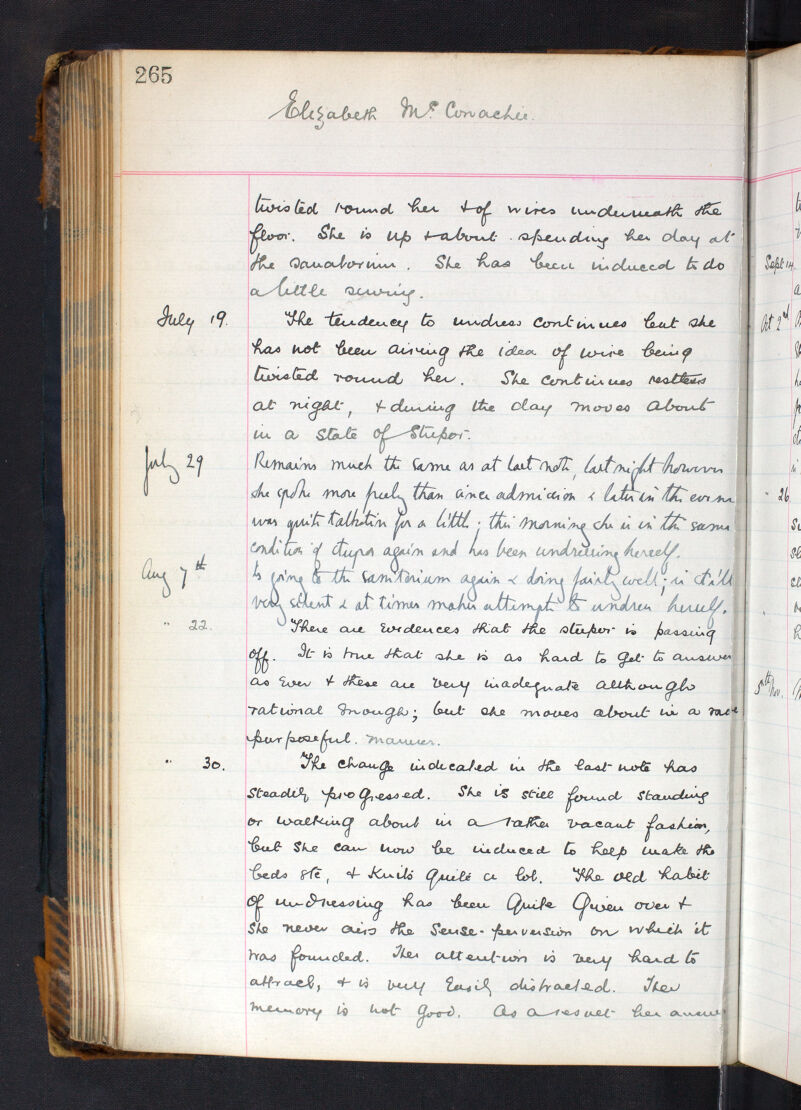 265
Elizabeth Mc Conachie.
twisted round her & of wires underneath the
floor. She is up & about spending her day at
the sanatorium. She has been induced to do
a little sewing.
July 19. The tendency to undress continues but she
has not been airing the idea of wire being
twisted round her. She continues restless
at night, & during the day moves about
in a state of Stupor.
July 29 Remains much the same as at last note, last night however
she spoke more freely than since admission & later in the evening
was quite talkative for a little; this morning she is in the same
condition of stupor again and has been undressing herself.
Aug 7th Is going to the sanitorium again & doing fairly well; is still
very silent & at times makes attempts to undress herself.
" 22. There are evidences that the stupor is passing
off. It is true that she is as hard to get to answer
as ever & these are very inadequate although
rational enough; but she moves about in a more
purposeful manner.
" 30. The change indicated in the last note has
steadily progressed. She is still found standing
or walking about in a rather vacant fashion,
but she can now be induced to help make the
beds etc, & knits quite a lot. The old habit
of undressing has been quite given over &
she never airs the sense-perversion on which it
was founded. Her attention is very hard to
attract, & is very easily distracted. Her
memory is not good. As a result her answer
Sept 14
Oct 2nd
" 26
5th Nov.